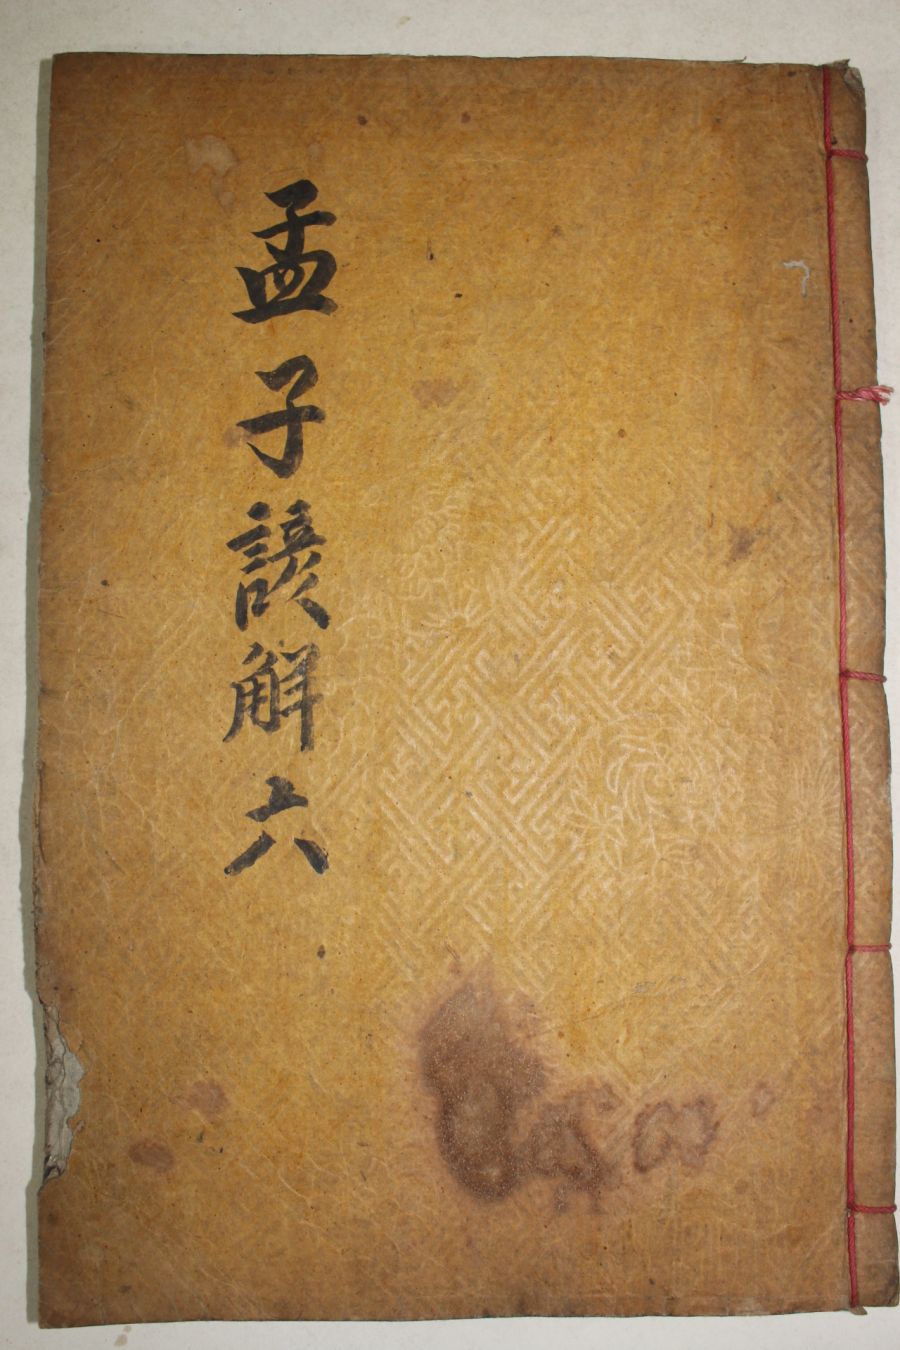 孟子諺解六